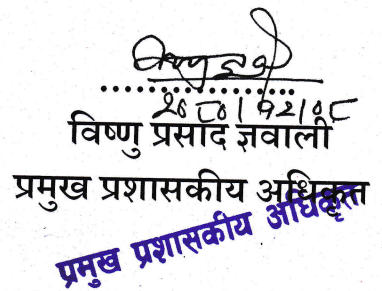 २०८०।१२।०८
विष्णु प्रसाद ज्ञवाली
प्रमुख प्रशासकीय अधिकृत
प्रमुख प्रशासकीय अधिकृत